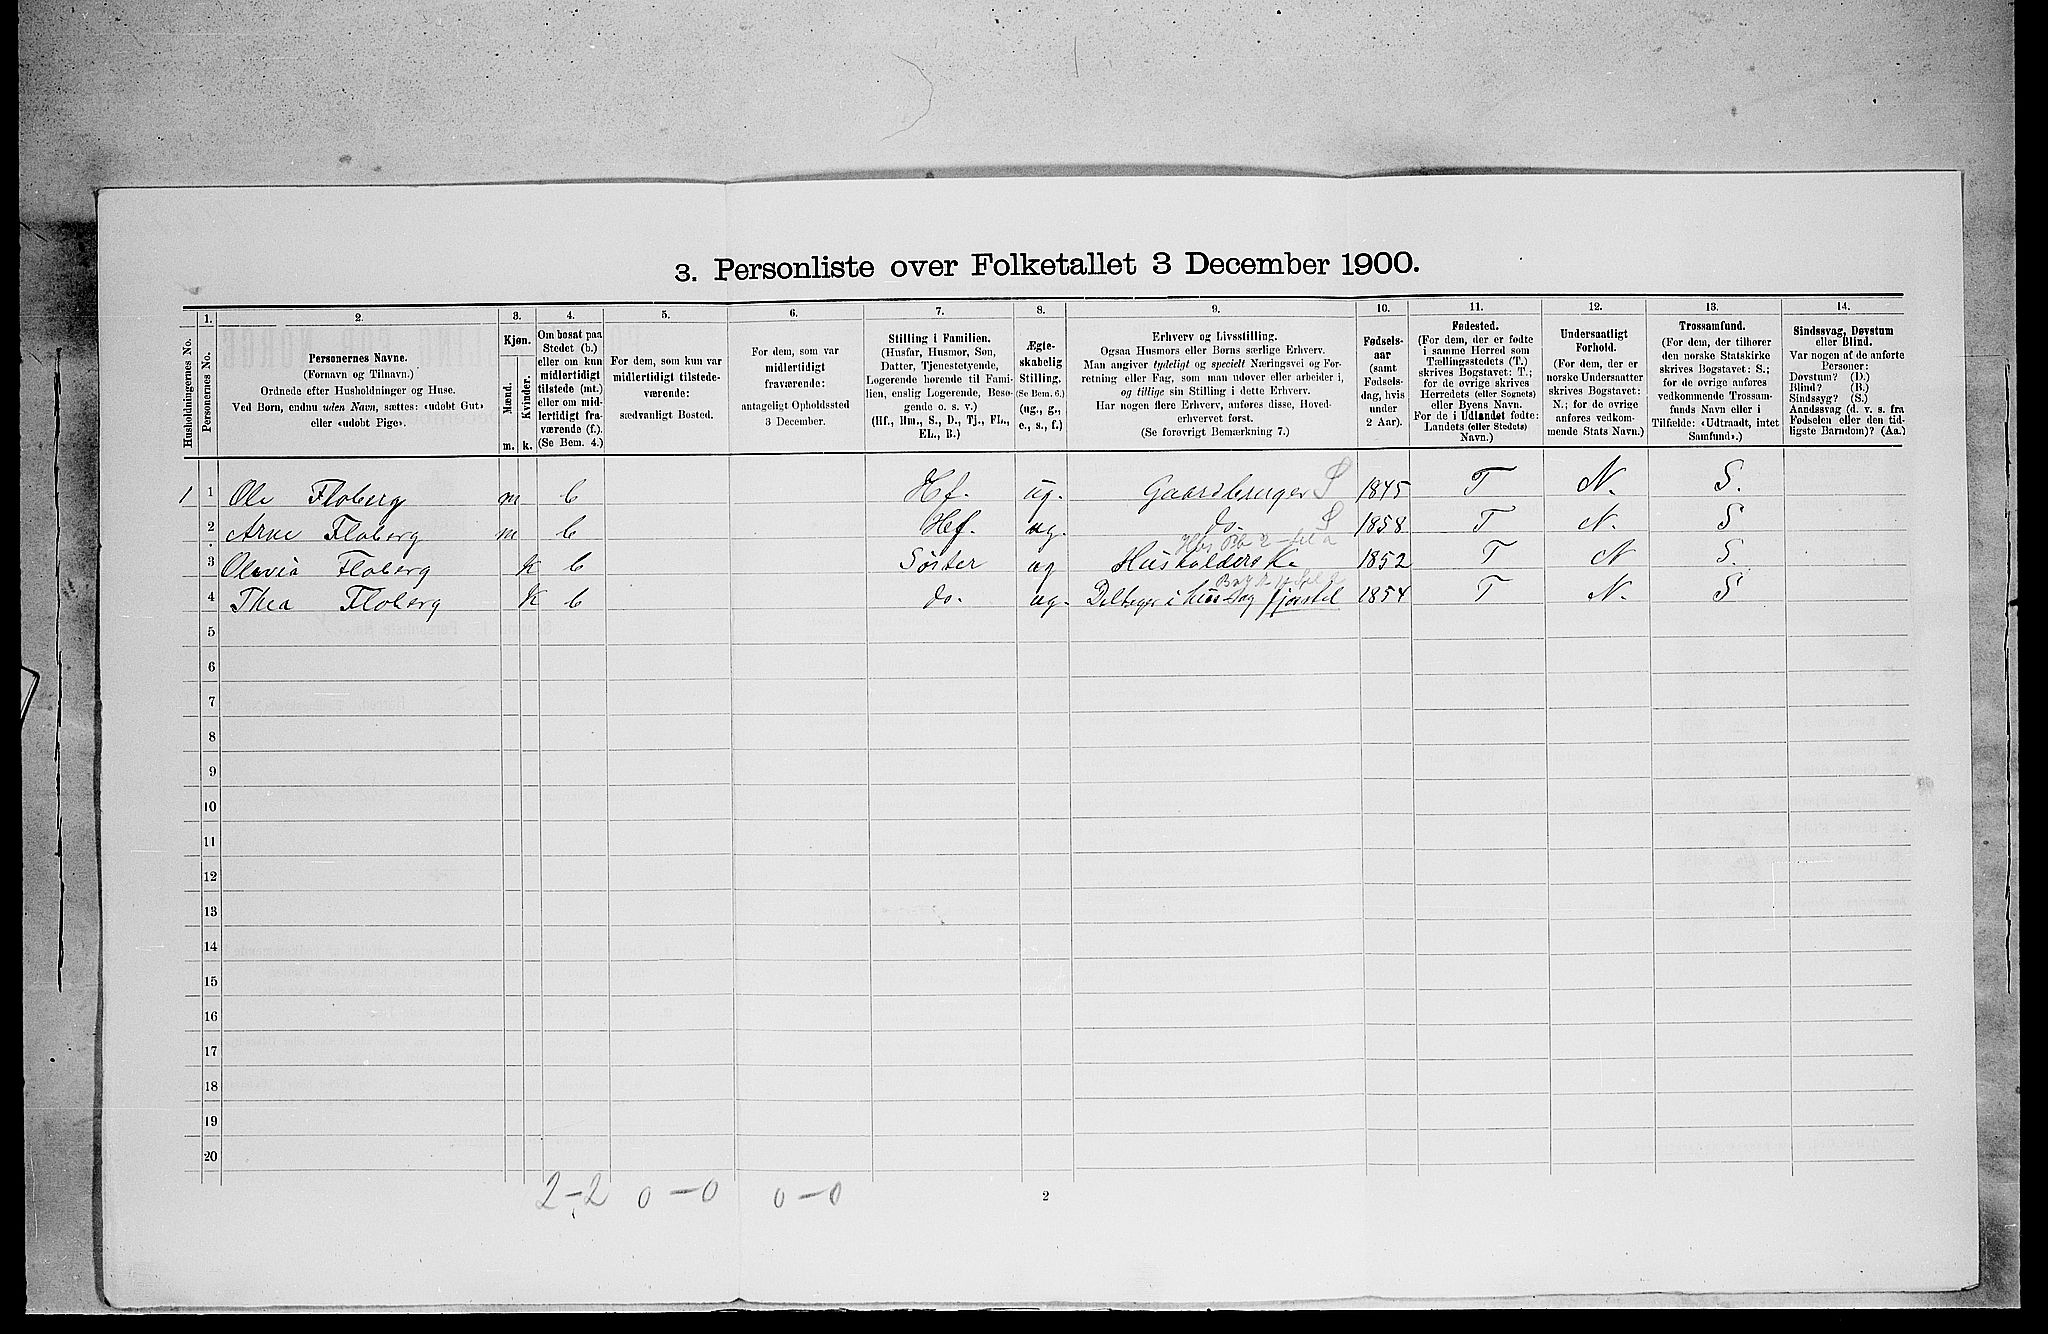 3. Personliste over Folketallet 3 December 1900.
Husholdningernes No.
1.
Personernes No.
2.
Personernes Navne.
(Fornavn og Tilnavn.)
Ordnede efter Husholdninger og Huse.
Ved Børn, endnu uden Navn, sættes: «udøbt Gut»
eller «udøbt Pige».
3.
Kjøn.
Mænd.
Kvinder.
m. k.
4.
Om bosat paa
Stedet (b.)
eller om kun
midlertidigt
tilstede (mt.)
eller om mid-
lertidigt fra-
værende (f.).
(Se Bem. 4.)
5.
For dem, som kun var
midlertidigt tilstede-
værende:
sædvanligt Bosted.
6.
For dem, som var
midlertidigt
fraværende:
antageligt Opholdssted
3 December.
7.
Stilling i Familien.
(Husfar, Husmor, Søn,
Datter, Tjenestetyende,
Logerende hørende til Fami-
lien, enslig Logerende, Besø-
gende o. s. v.)
(Hf., Hm., S., D., Tj., FL.,
EL., B.)
8.
Ægte-
skabelig
Stilling.
(Se Bem. 6.)
(ug., g.,
e., s., f.)
9.
Erhverv og Livsstilling.
Ogsaa Husmors eller Børns særlige Erhverv.
Man angiver tydeligt og specielt Næringsvei og For-
retning eller Fag, som man udøver eller arbeider i,
og tillige sin Stilling i dette Erhverv.
Har nogen flere Erhverv, anføres disse, Hoved-
erhvervet først.
(Se forøvrigt Bemærkning 7.)
10.
Fødsels-
aar
(samt
Fødsels-
dag, hvis
under
2 Aar).
11.
Fødested.
(For dem, der er fødte
i samme Herred som
Tællingsstedets (T.)
skrives Bogstavet: T.;
for de øvrige skrives
Herredets (eller Sognets)
eller Byens Navn.
For de i Udlandet fødte:
Landets (eller Stedets)
Navn.)
12.
Undersaatligt
Forhold.
(For dem, der er
norske Undersaatter
skrives Bogstavet:
N.; for de øvrige
anføres vedkom-
mende Stats Navn.)
13.
Trossamfund.
(For dem, der tilhører
den norske Statskirke
skrives Bogstavet: S.;
for de øvrige anføres
vedkommende Trossam-
funds Navn eller i
Tilfælde: «Udtraadt, intet
Samfund».)
14.
Sindssvag, Døvstum
eller Blind.
Var nogen af de anførte
Personer:
Døvstum? (D.)
Blind? (B.)
Sindssyg? (S.)
Aandssvag (d. v. s. fra
Fødselen eller den tid-
ligste Barndom)? (Aa.)
1 1 Ole Floberg m b Hf. ug. Gaardbruger S 1845 T N. S.
2 Arne Floberg m b Hf. ug. do. S 1858 T N. S
3 Olevia Floberg k b Søster ug Husholderske 1852 T N S.
4 Thea Floberg k b do. ug. Deltager i Hus og fjøsstel 1854 T N. S
5
6
7
8
9
10
11
12
13
14
15
16
17
18
19
20
2-2 0-0 0-0
2